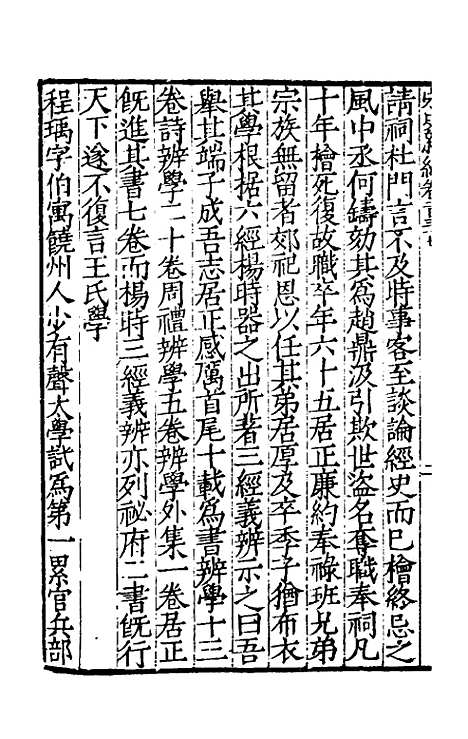 請祠杜門言不及時事客至談論經史而已檜終忌之
風中丞何鑄劾其爲趙鼎汲引欺世盗名奪職奉祠凡
十年檜死復故職卒年六十五居正廉約奉祿班兄弟
宗族無留者郊祀恩以任其弟居厚及卒季子猶布衣
其學根据六經楊時器之出所著三經義辨示之曰吾
舉其端子成吾志居正感厲首尾十載爲書辨學十三
卷詩辨學二十卷周禮辨學五卷辨學外集一卷居正
旣進其書七卷而楊時三經義辨亦列祕府二書旣行
天下遂不復言王氏學
程瑀字伯寓饒州人少有聲太學試爲第一累官兵部